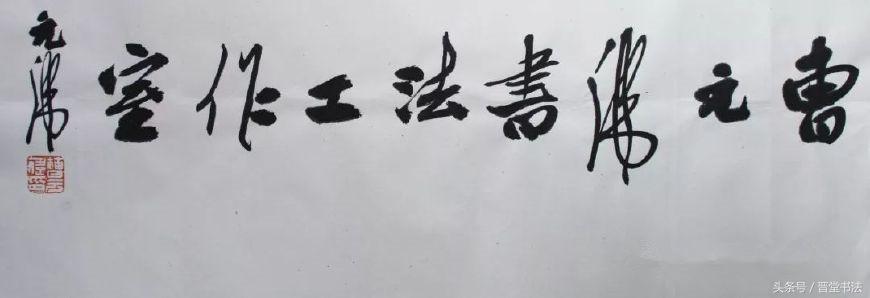 曹元書法工作室
元
头条号／晋堂书法